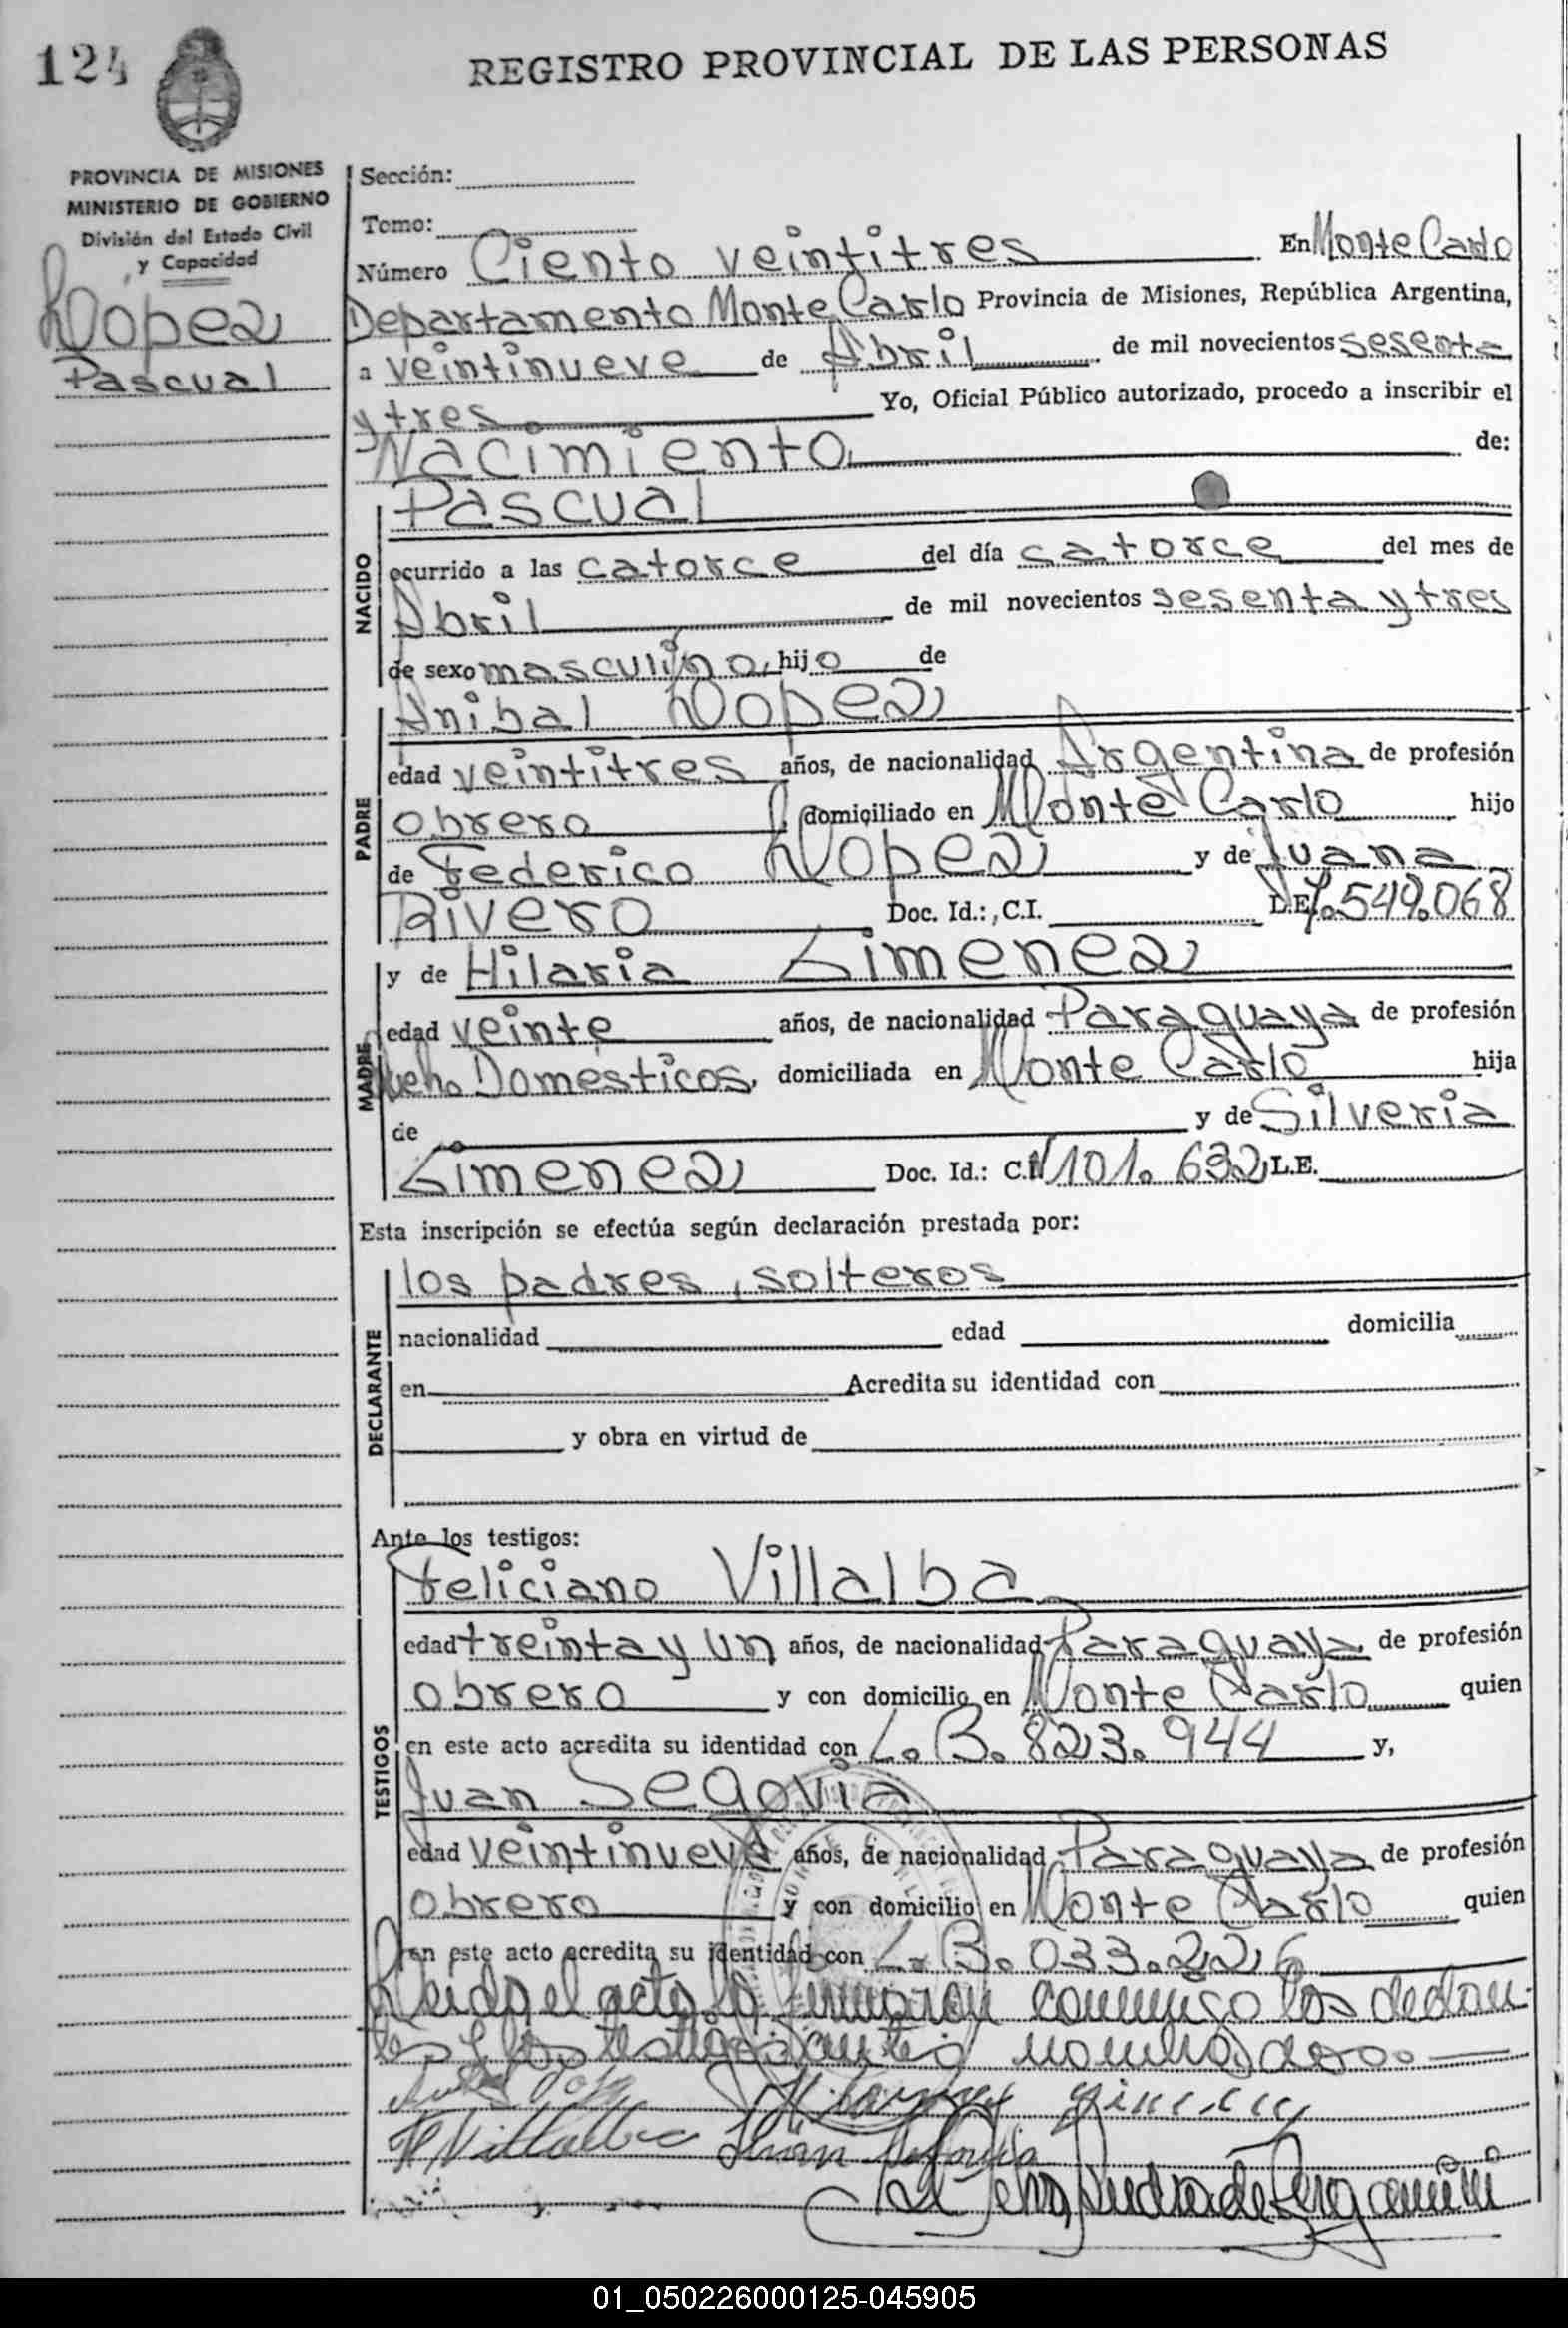 124
REGISTRO PROVINCIAL DE LAS PERSONAS
PROVINCIA DE MISIONES
MINISTERIO DE GOBIERNO
División del Estado Civil
y Capacidad
Lopez
Pascual
Sección:
Tomo:
Número Ciento veintitres En Monte Carlo
Departamento Monte Carlo Provincia de Misiones, República Argentina,
a veintinueve de Abril de mil novecientos sesenta
y tres Yo, Oficial Público autorizado, procedo a inscribir el
Nacimiento de:
NACIDO
Pascual
ocurrido a las catorce del día catorce del mes de
Abril de mil novecientos sesenta y tres
de sexo masculino, hijo de
PADRE
Anibal Lopez
edad veintitres años, de nacionalidad Argentina de profesión
obrero domiciliado en Monte Carlo hijo
de Federico Lopez y de Juana
Rivero Doc. Id.: C.I. L.E. 7.549.068
MADRE
y de Hilaria Gimenez
edad veinte años, de nacionalidad Paraguaya de profesión
Queha. Domesticos, domiciliada en Monte Carlo hija
de y de Silveria
Gimenez Doc. Id.: C.I. Nº 101.632 L.E.
Esta inscripción se efectúa según declaración prestada por:
DECLARANTE
los padres, solteros
nacionalidad edad domicilia
en Acredita su identidad con
y obra en virtud de
Ante los testigos:
TESTIGOS
Feliciano Villalba
edad treinta y un años, de nacionalidad Paraguaya de profesión
obrero y con domicilio en Monte Carlo quien
en este acto acredita su identidad con L.B. 823.944 y,
Juan Segovia
edad veintinueve años, de nacionalidad Paraguaya de profesión
obrero y con domicilio en Monte Carlo quien
en este acto acredita su identidad con L.B. 033.226
Leida el acta, la firmaron conmigo los declaran-
tes y los testigos antes nombrados
Villalba Juan Segovia
01_050226000125-045905